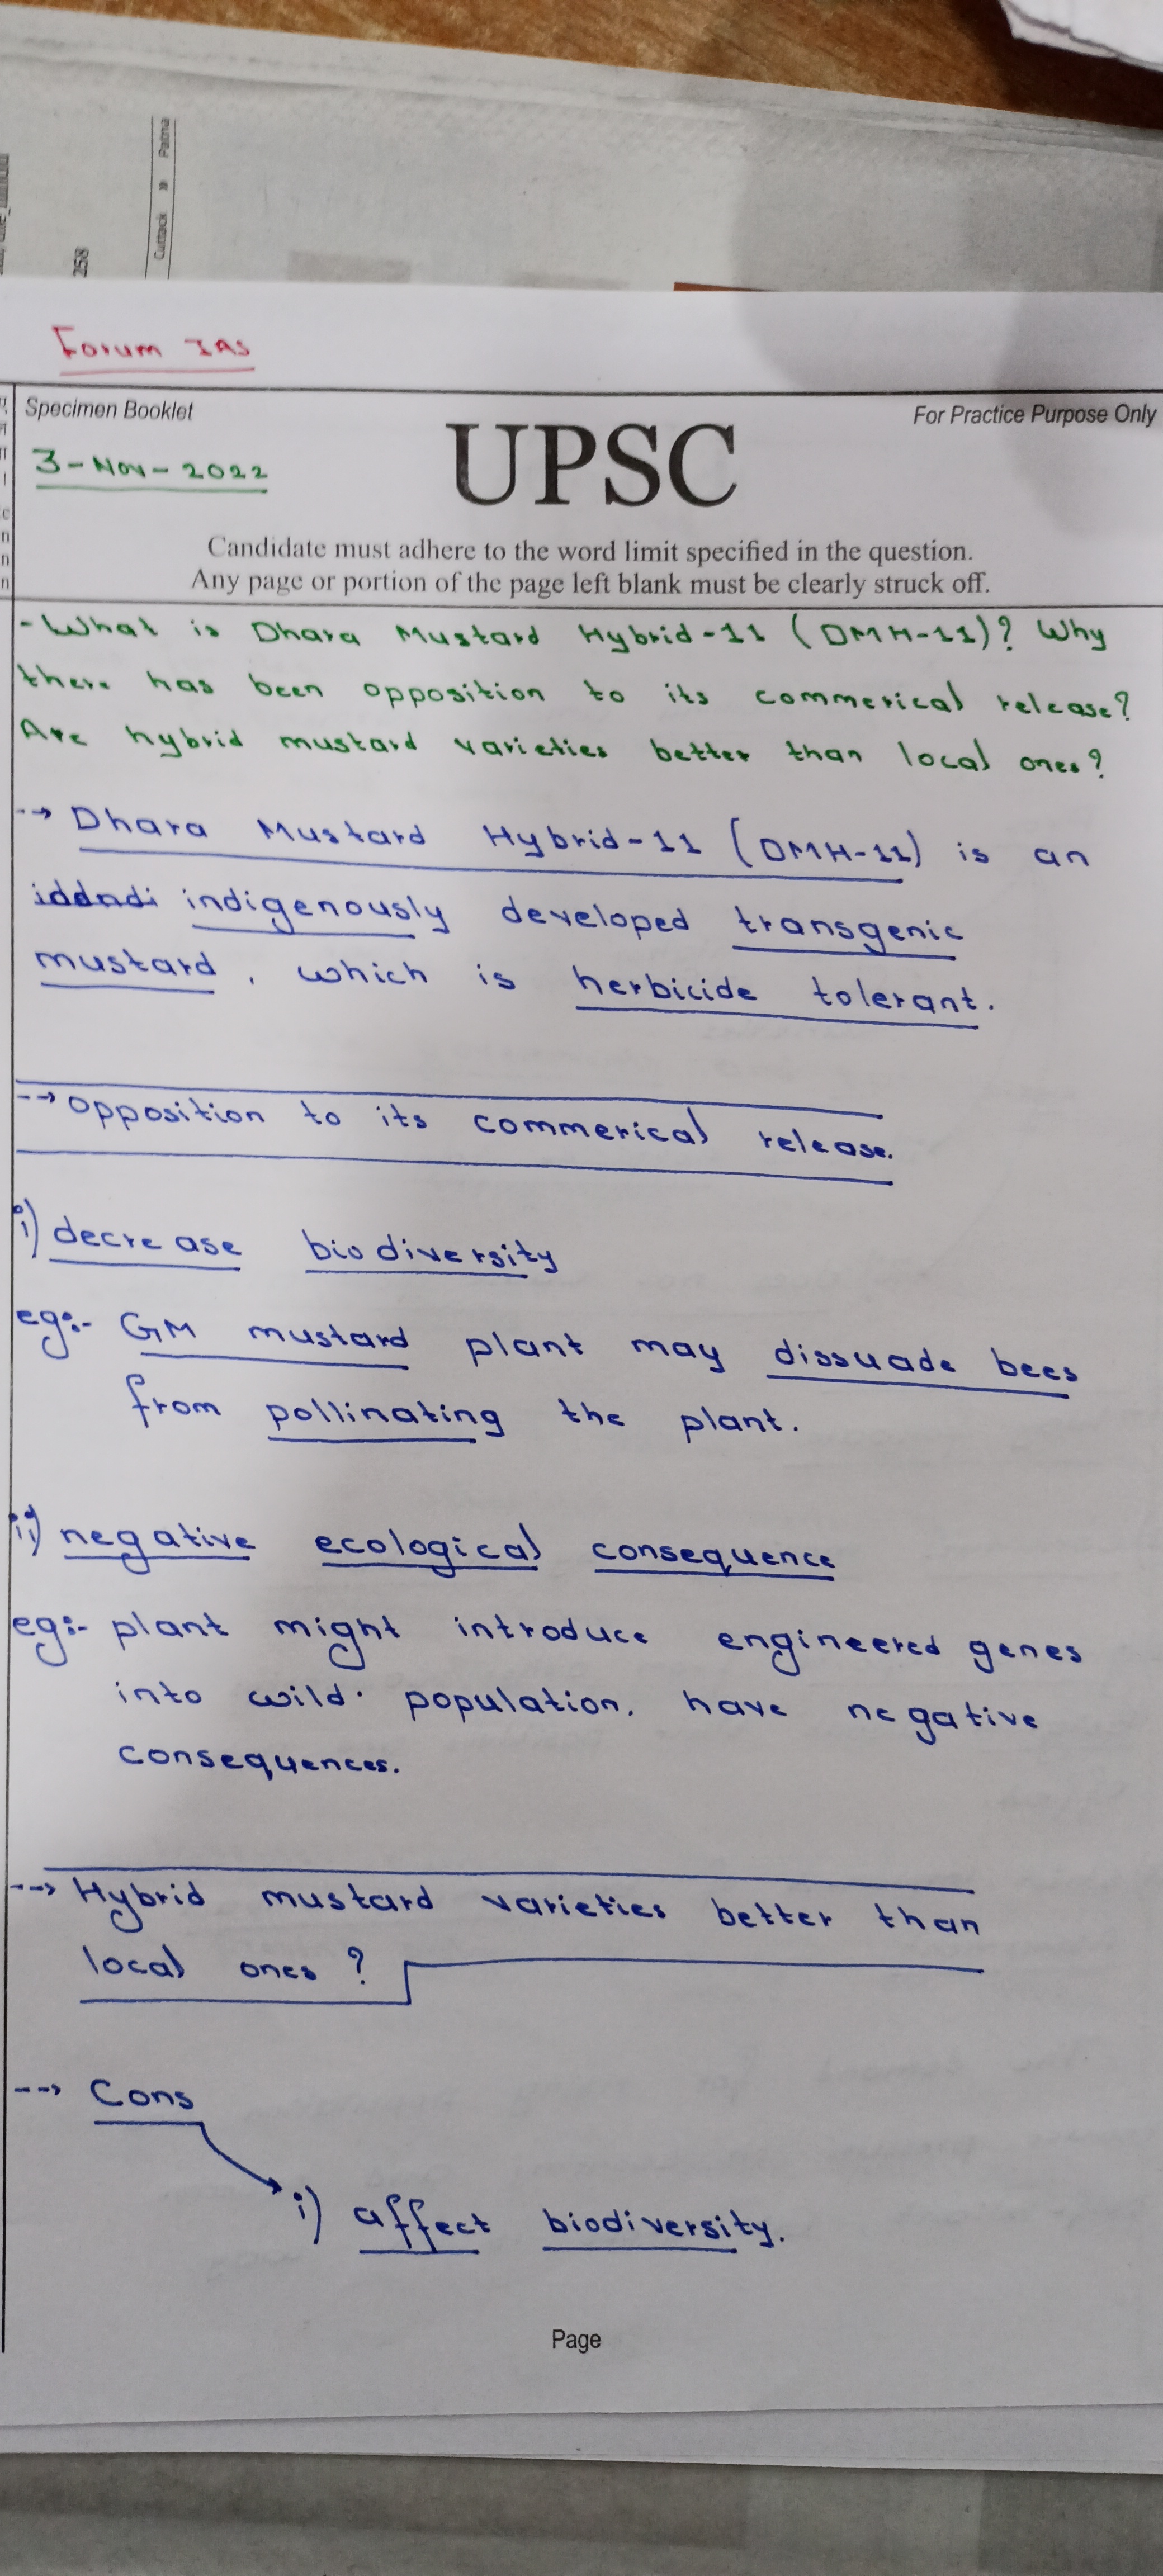 Cuttack » Patna
258
Forum IAS
Specimen Booklet
For Practice Purpose Only
3-Nov-2022
UPSC
Candidate must adhere to the word limit specified in the question.
Any page or portion of the page left blank must be clearly struck off.
- What is Dhara Mustard Hybrid-11 (DMH-11)? Why
there has been opposition to its commerical release?
Are hybrid mustard varieties better than local ones?
--> Dhara Mustard Hybrid-11 (DMH-11) is an
indigenously developed transgenic
mustard, which is herbicide tolerant.
--> opposition to its commerical release.
i) decrease biodiversity
eg:- GM mustard plant may dissuade bees
from pollinating the plant.
ii) negative ecological consequence
eg:- plant might introduce engineered genes
into wild population, have negative
consequences.
--> Hybrid mustard varieties better than
local ones?
--> Cons
i) affect biodiversity.
Page